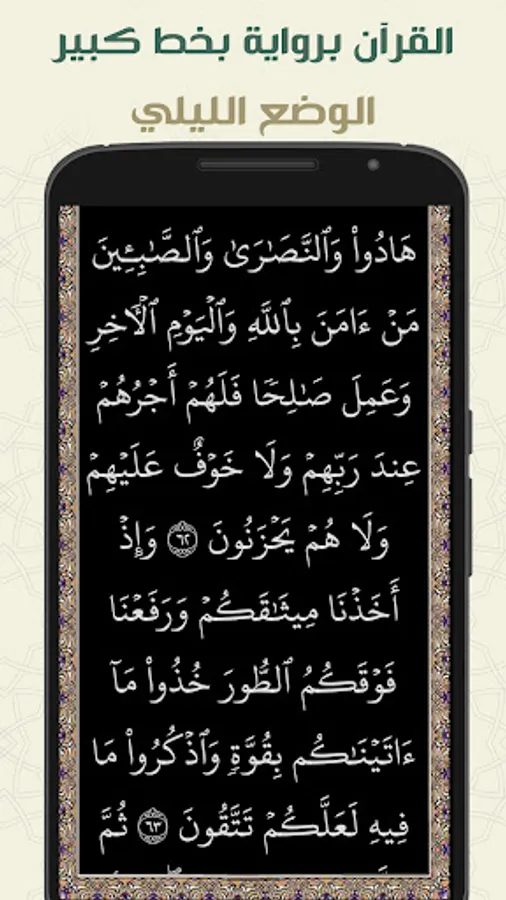 القرآن برواية بخط كبير
الوضع الليلي
هَادُوا۟ وَٱلنَّصَٰرَىٰ وَٱلصَّٰبِـِٔينَ
مَنْ ءَامَنَ بِٱللَّهِ وَٱلْيَوْمِ ٱلْءَاخِرِ
وَعَمِلَ صَٰلِحًا فَلَهُمْ أَجْرُهُمْ
عِندَ رَبِّهِمْ وَلَا خَوْفٌ عَلَيْهِمْ
وَلَا هُمْ يَحْزَنُونَ ٦٢ وَإِذْ
أَخَذْنَا مِيثَٰقَكُمْ وَرَفَعْنَا
فَوْقَكُمُ ٱلطُّورَ خُذُوا۟ مَآ
ءَاتَيْنَٰكُم بِقُوَّةٍ وَٱذْكُرُوا۟ مَا
فِيهِ لَعَلَّكُمْ تَتَّقُونَ ٦٣ ثُمَّ